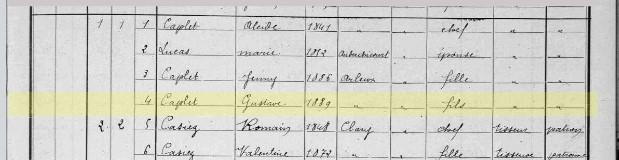 1 1 1 Caplet Alcide 1841 " chef " "
2 Lucas marie 1852 " épouse " "
3 Caplet Jenny 1886 Arleux " fille " "
4 Caplet Gustave 1889 " " fils " "
2 2 5 Casiez Romain 1848 Clary " chef tisseur patron
6 Casiez Valentine 1872 " " fille tisseuse patronne